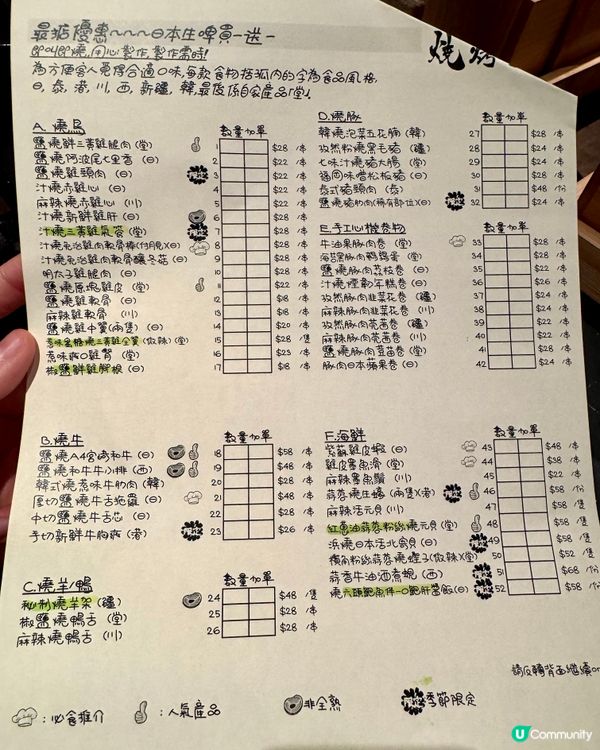 最抵優惠~~~日本生啤買一送一
即叫即燒,用心製作,製作需時!
燒烤
為方便客人覓得合適口味,每款食物括弧內的字為食品風格
日,泰,港,川,西,新疆,韓,最後係自家產品「堂」
A. 燒鳥 數量 加單
鹽燒鮮三黃雞腿肉(堂) 1 $28 /本
鹽燒阿波尾七里香(日) 2 $22 /本
鹽燒雞頸肉(日) 3 $22 /本
汁燒赤雞心(日) 4 $22 /本
麻辣燒赤雞心(川) 5 $22 /本
汁燒新鮮雞肝(日) 6 $28 /本
汁燒三黃雞氣管(堂) 7 $28 /本
8 $28 /本
汁燒免治雞肉軟骨釀冬菇(日) 9 $28 /本
明太子雞腿肉(日) 10 $28 /本
鹽燒原塊雞皮(堂) 11 $22 /本
鹽燒雞軟骨(日) 12 $18 /本
麻辣雞軟骨(川) 13 $18 /本
鹽燒雞中翼(兩隻)(日) 14 $20 /本
惹味金榜燒三黃雞全翼(微辣)(堂) 15 $28 /隻
惹味疏口雞腎(堂) 16 $23 /本
椒鹽鮮雞腳根(日) 17 $18 /本
B. 燒牛 數量 加單
鹽燒A4宮崎和牛(日) 18 $58 /本
鹽燒和牛牛小排(西) 19 $48 /本
韓式燒惹味牛肋肉(韓) 20 $28 /本
厚切鹽燒牛舌拖羅(日) 21 $48 /本
中切鹽燒牛舌芯(日) 22 $28 /本
手切新鮮牛胸爽(港) 23 $26 /本
C. 燒羊/鴨 數量 加單
秘制燒羊架(疆) 24 $48 /隻
椒鹽燒鴨舌(堂) 25 $28 /本
麻辣燒鴨舌(川) 26 $28 /本
D. 燒豚 數量 加單
韓燒泡菜五花腩(韓) 27 $28 /本
孜然粉燒黑毛豬(疆) 28 $24 /本
七味汁燒豬大腸(堂) 29 $24 /本
鹽燒味噌松板豬(日) 30 $28 /本
泰式豬頸肉(泰) 31 $48 /份
鹽燒豬肋肉(稀有部位)(日) 32 $24 /本
E. 手工心機卷物 數量 加單
牛油果豚肉卷(堂) 33 $28 /本
海苔黑豚肉鵪鶉蛋(堂) 34 $28 /本
鹽燒豚肉荔枝卷(日) 35 $22 /本
汁燒煙韌年糕卷(日) 36 $26 /本
孜然豚肉韭菜花卷(疆) 37 $24 /本
麻辣豚肉韭菜花卷(川) 38 $24 /本
孜然豚肉芫茜卷(疆) 39 $22 /本
麻辣豚肉芫茜卷(川) 40 $22 /本
鹽燒豚肉豆苗卷(堂) 41 $28 /本
豚肉日本蘋果卷(日) 42 $24 /本
F. 海鮮 數量 加單
紫蘇雞皮蝦(日) 43 $48 /本
雞皮墨魚滑(堂) 44 $38 /本
麻辣墨魚鬚(川) 45 $28 /本
蒜蓉燒生蠔(兩隻)(港) 46 $58 /份
麻辣活元貝(川) 47 $58 /隻
紅蔥油蒜蓉粉絲燒元貝(堂) 48 $58 /隻
浜燒日本活北寄貝(日) 49 $58 /隻
橫角粉絲蒜蓉燒蟶子(微辣)(堂) 50 $52 /份
蒜香牛油酒煮蜆(西) 51 $68 /份
燒六頭鮑魚伴一口鮑肝醬飯(日) 52 $58 /隻
請反轉背面繼續or
:必食推介
:人氣產品
非全熟
季節限定
U Community